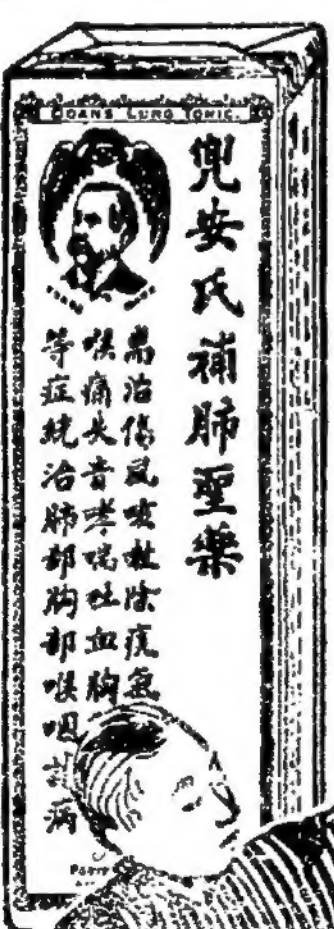 DOANS LUNG TONIC.
兜安氏補肺聖藥
專治傷風咳杜除痰氣
喉痛失音哮喘吐血胸
等症統治肺部胸部喉咽計病